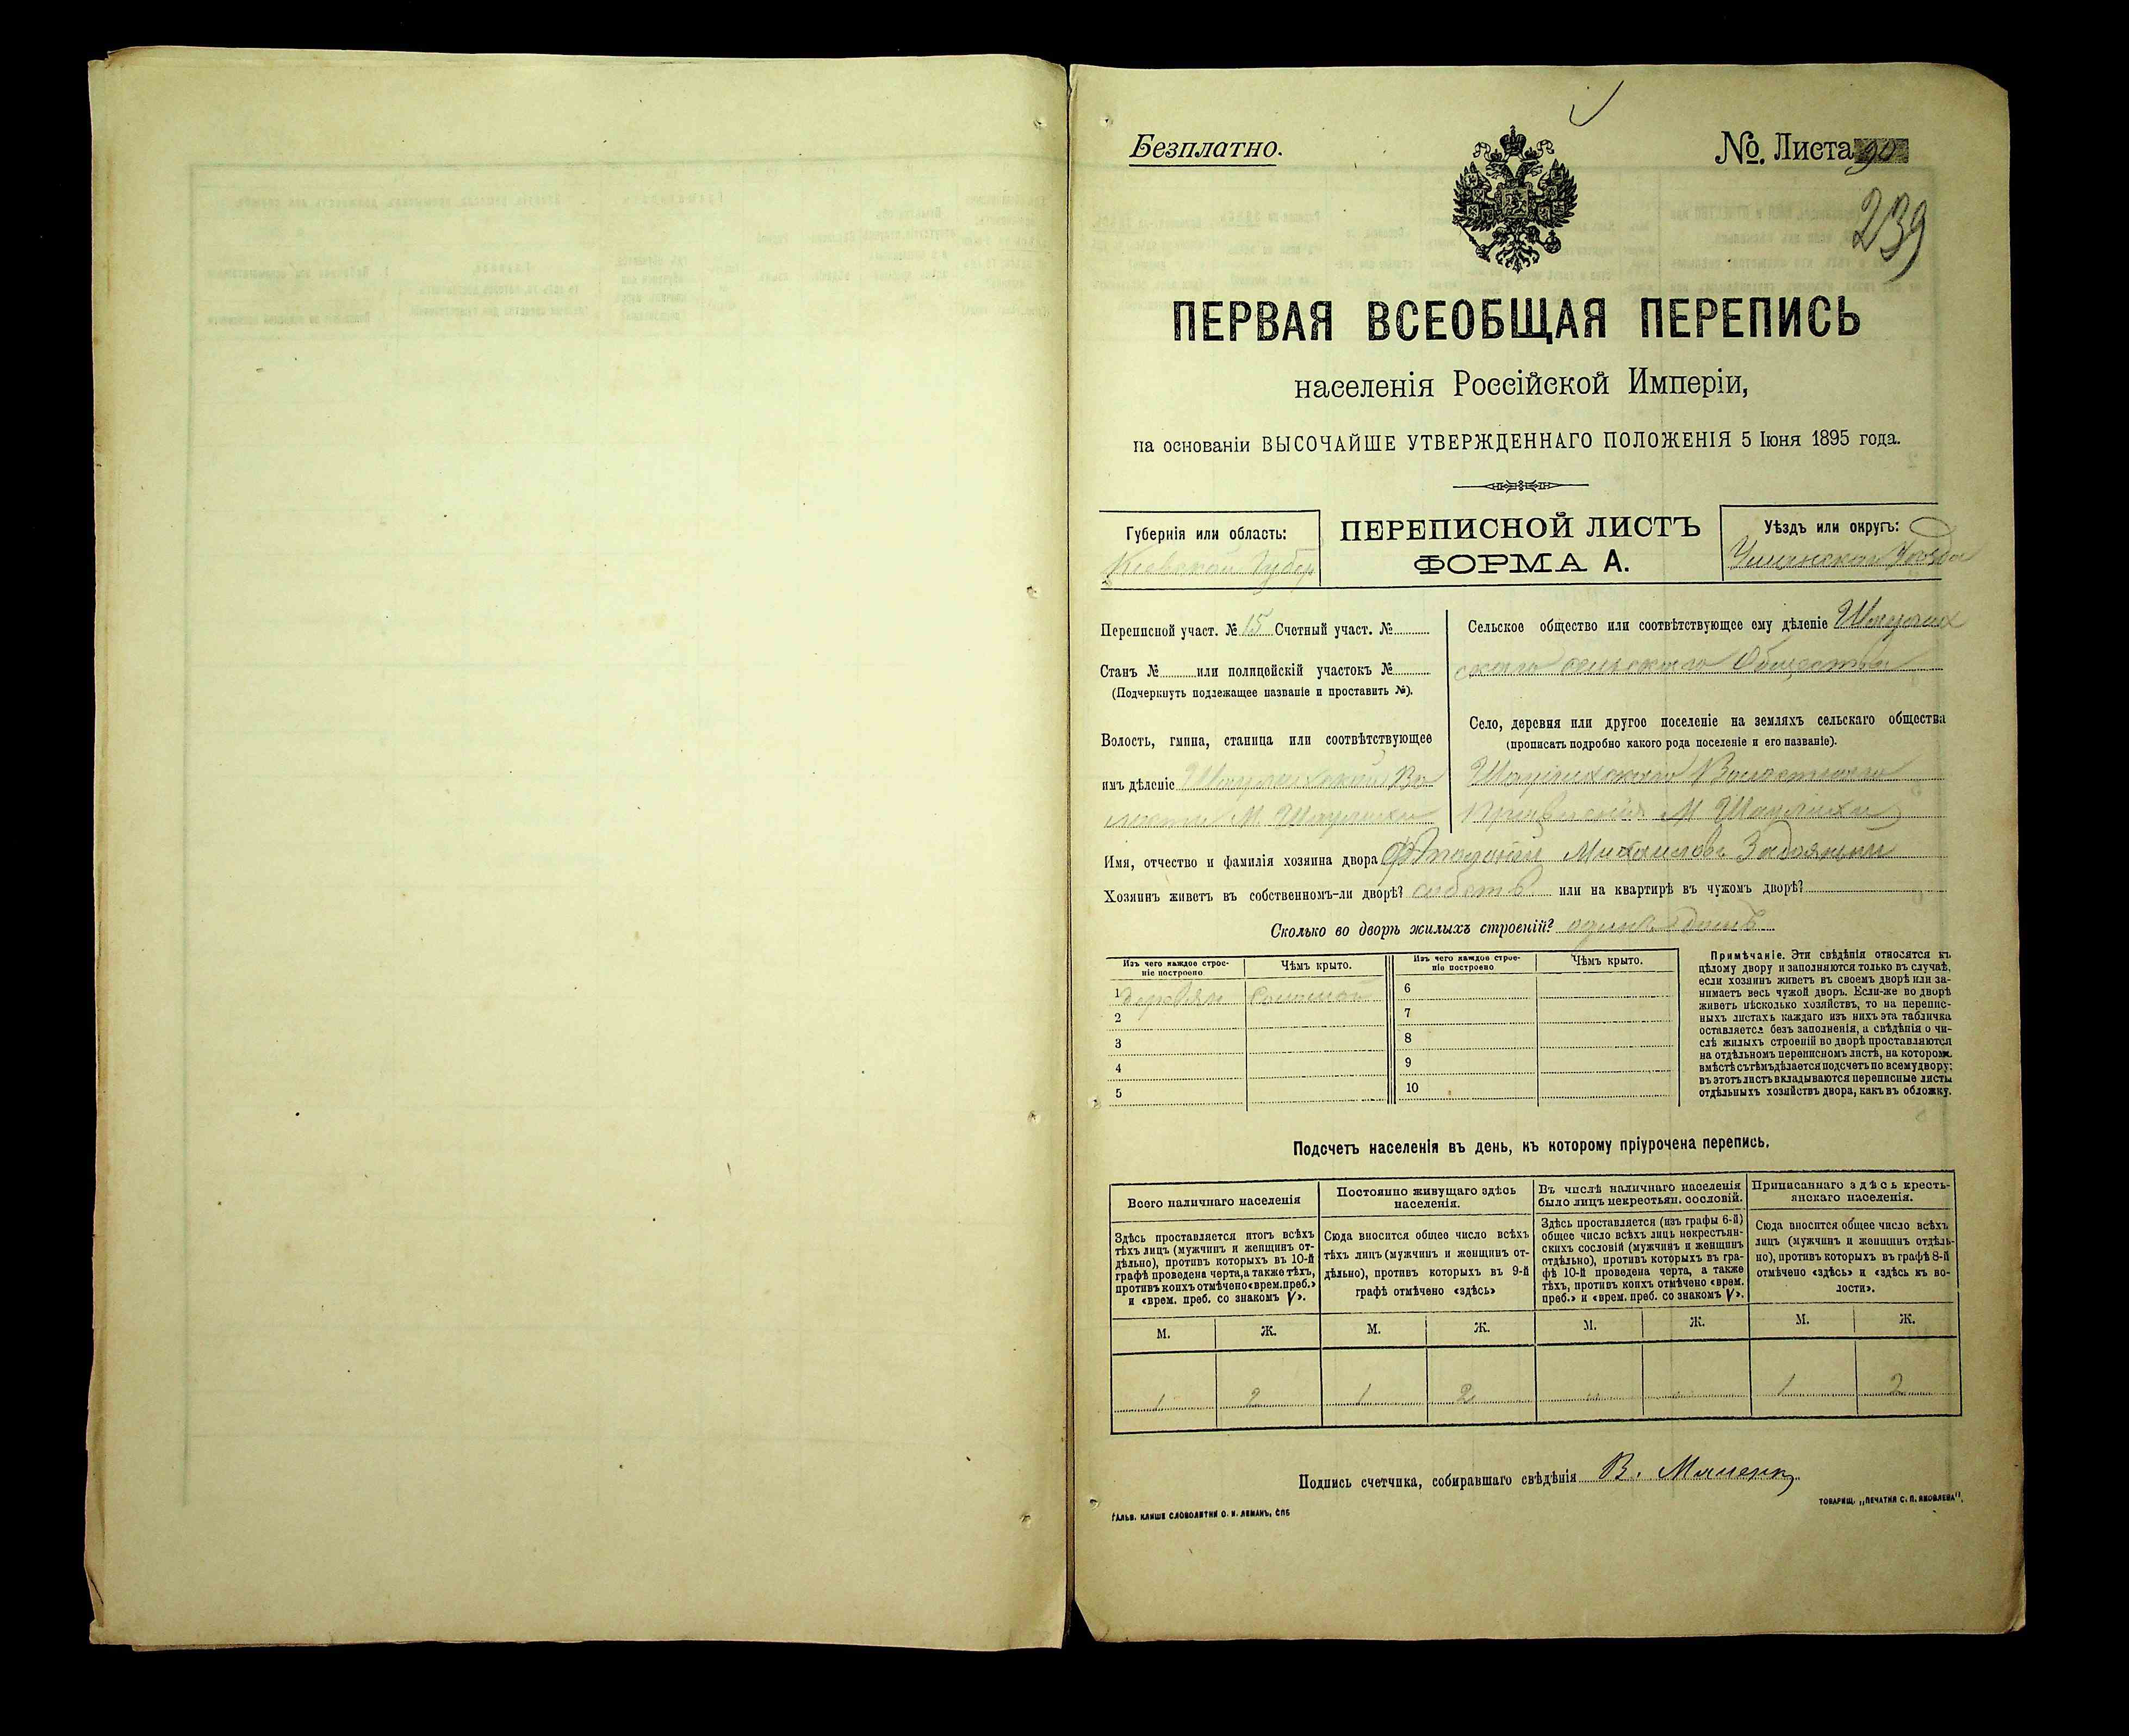 Безплатно.
№. Листа 90
239
ПЕРВАЯ ВСЕОБЩАЯ ПЕРЕПИСЬ
населенія Россійской Имперіи,
на основаніи ВЫСОЧАЙШЕ УТВЕРЖДЕННАГО ПОЛОЖЕНІЯ 5 Іюня 1895 года.
Губернія или область:
Кіевской Губер
ПЕРЕПИСНОЙ ЛИСТЪ
ФОРМА А.
Уѣздъ или округъ:
Уѣзда
Переписной участ. № 15 Счетный участ. №
Станъ № или полицейскій участокъ №
(Подчеркнуть подлежащее названіе и проставить №).
Волость, гмина, станица или соотвѣтствующее
имъ дѣленіе Шаулихской Во
лости М. Шаулиха
Сельское общество или соотвѣтствующее ему дѣленіе Шаулих
скаго сельскаго Общества
Село, деревня или другое поселеніе на земляхъ сельскаго общества
(прописать подробно какого рода поселеніе и его названіе).
Шаулихскаго Волостнаго
Правленія М Шаулиха
Имя, отчество и фамилія хозяина двора Михаиловъ
Хозяинъ живетъ въ собственномъ-ли дворѣ? собств или на квартирѣ въ чужомъ дворѣ?
Сколько во дворѣ жилыхъ строеній? одинъ домъ
Изъ чего каждое строе-
ніе построено
Чѣмъ крыто.
Изъ чего каждое строе-
ніе построено
Чѣмъ крыто.
1 деревян Соломой
2
3
4
5
6
7
8
9
10
Примѣчаніе. Эти свѣдѣнія относятся къ
цѣлому двору и заполняются только въ случаѣ,
если хозяинъ живетъ въ своемъ дворѣ или за-
нимаетъ весь чужой дворъ. Если-же во дворѣ
живетъ нѣсколько хозяйствъ, то на перепис-
ныхъ листахъ каждаго изъ нихъ эта табличка
оставляется безъ заполненія, а свѣдѣнія о чи-
слѣ жилыхъ строеній во дворѣ проставляются
на отдѣльномъ переписномъ листѣ, на которомъ
вмѣстѣ съ тѣмъ дѣлается подсчетъ по всему двору;
въ этотъ листъ вкладываются переписные листы
отдѣльныхъ хозяйствъ двора, какъ въ обложку.
Подсчетъ населенія въ день, къ которому пріурочена перепись.
Всего наличнаго населенія
Здѣсь проставляется итогъ всѣхъ
тѣхъ лицъ (мужчинъ и женщинъ от-
дѣльно), противъ которыхъ въ 10-й
графѣ проведена черта, а также тѣхъ,
противъ коихъ отмѣчено «врем. преб.»
и «врем. преб. со знакомъ V».
Постоянно живущаго здѣсь
населенія.
Сюда вносится общее число всѣхъ
тѣхъ лицъ (мужчинъ и женщинъ от-
дѣльно), противъ которыхъ въ 9-й
графѣ отмѣчено «здѣсь»
Въ числѣ наличнаго населенія
было лицъ некрестьян. сословій.
Здѣсь проставляется (изъ графы 6-й)
общее число всѣхъ лицъ некрестьян-
скихъ сословій (мужчинъ и женщинъ
отдѣльно), противъ которыхъ въ гра-
фѣ 10-й проведена черта, а также
тѣхъ, противъ коихъ отмѣчено «врем.
преб.» и «врем. преб. со знакомъ V».
Приписаннаго здѣсь кресть-
янскаго населенія.
Сюда вносится общее число всѣхъ
лицъ (мужчинъ и женщинъ отдѣль-
но), противъ которыхъ въ графѣ 8-й
отмѣчено «здѣсь» и «здѣсь къ во-
лости».
М. Ж. М. Ж. М. Ж. М. Ж.
1 2 1 2 „ „ 1 2
Подпись счетчика, собиравшаго свѣдѣнія В.
ГАЛЬВ. КЛИШЕ СЛОВОЛИТНИ О. И. ЛЕМАНЪ, СПБ
ТОВАРИЩ. „ПЕЧАТНЯ С. П. ЯКОВЛЕВА".